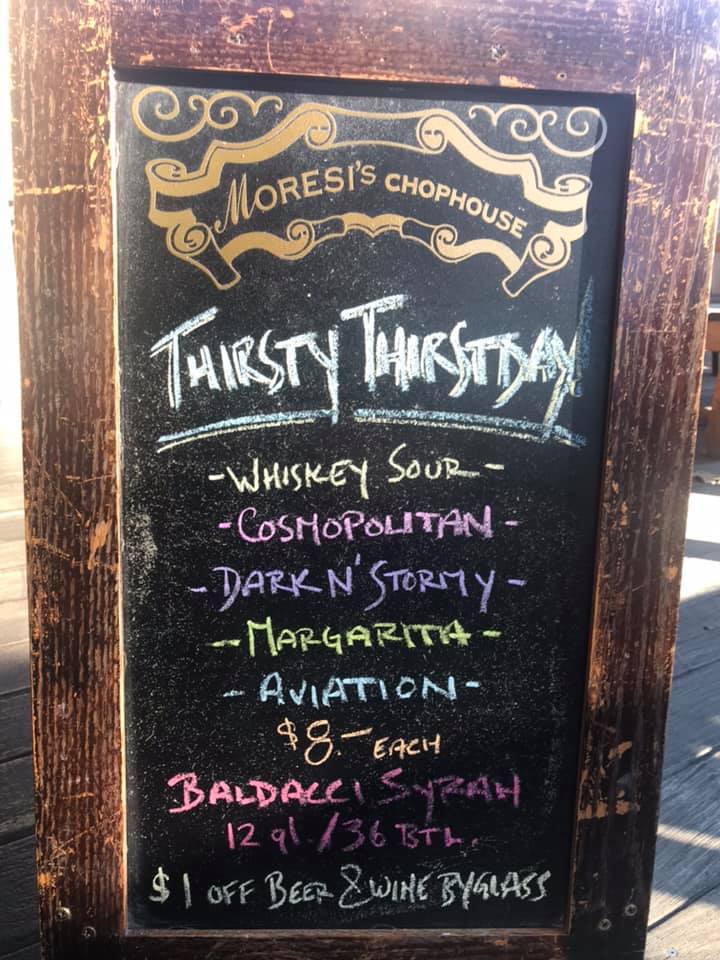 MORESI'S CHOPHOUSE
THIRSTY THIRSTDAY
-WHISKEY SOUR-
-COSMOPOLITAN-
-DARK N' STORMY-
-MARGARITA-
-AVIATION-
$8.- EACH
BALDACCI SYRAH
12 gl. /36 BTL.
$1 OFF BEER & WINE BY GLASS